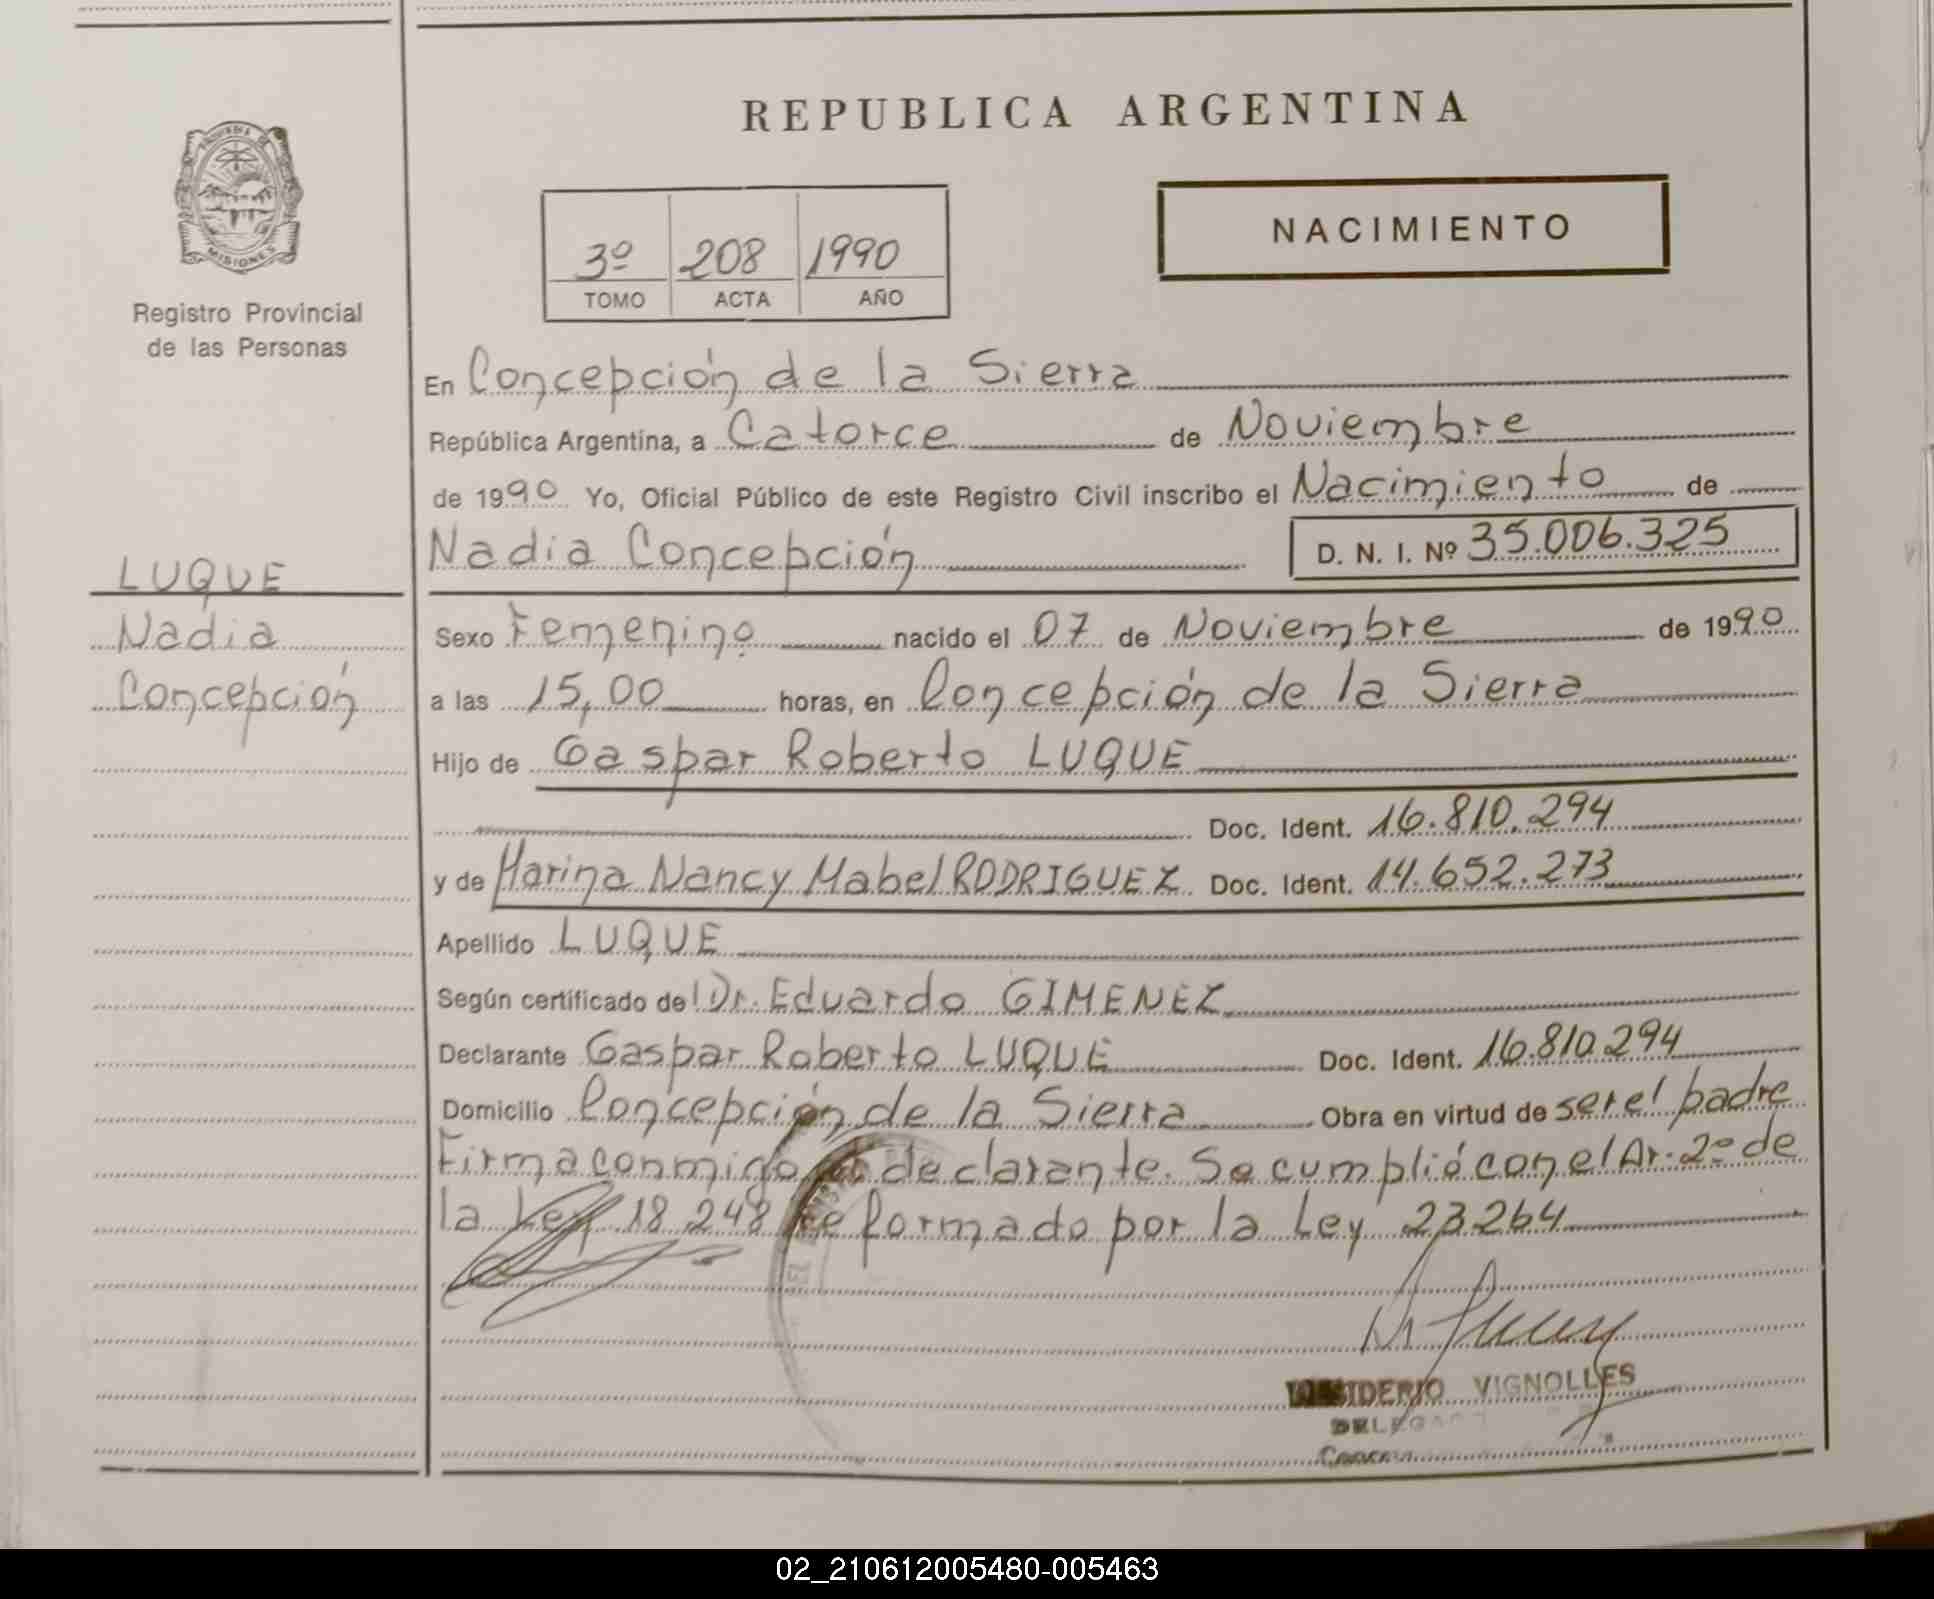 REPUBLICA ARGENTINA
PROVINCIA DE
MISIONES
Registro Provincial
de las Personas
NACIMIENTO
3º 208 1990
TOMO ACTA AÑO
En Concepción de la Sierra
República Argentina, a Catorce de Noviembre
de 1990 Yo, Oficial Público de este Registro Civil inscribo el Nacimiento de
Nadia Concepción D. N. I. Nº 35.006.325
LUQUE
Nadia
Concepción
Sexo Femenino nacido el 07 de Noviembre de 1990
a las 15,00 horas, en Concepción de la Sierra
Hijo de Gaspar Roberto LUQUE
Doc. Ident. 16.810.294
y de Marina Nancy Mabel RODRIGUEZ Doc. Ident. 14.652.273
Apellido LUQUE
Según certificado de Dr. Eduardo GIMENEZ
Declarante Gaspar Roberto LUQUE Doc. Ident. 16.810.294
Domicilio Concepción de la Sierra Obra en virtud de ser el padre
Firma conmigo el declarante. Se cumplió con el Ar. 2º de
la Ley 18.248 reformado por la Ley 23.264
VIGNOLLES
02_210612005480-005463